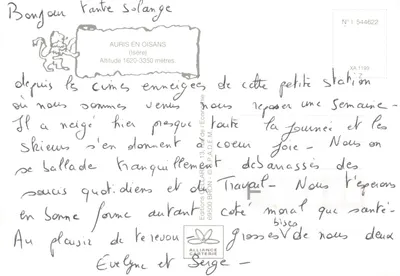 Bonjour tante Solange
N° I 544622
AURIS EN OISANS
(Isère)
Altitude 1620-3330 mètres
depuis les cimes enneigées de cette petite station
où nous sommes venus nous reposer une semaine -
Il a neigé hier presque toute la journée et les
skieurs s'en donnent à coeur joie - Nous on
se ballade tranquillement débarrassés des
soucis quotidiens et du Travail - Nous t'espérons
en bonne forme autant coté moral que santé -
Au plaisir de te revoir grosses bises de nous deux
ALLIANCE
Evelyne et Serge -